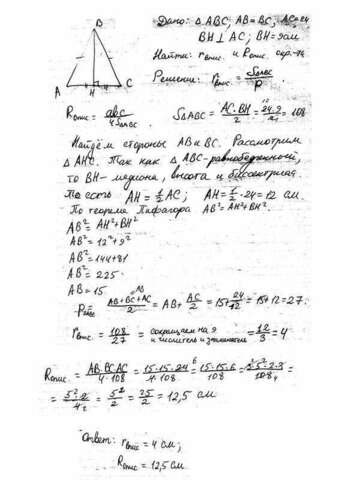 B
A H C
Дано: △ABC, AB=BC, AC=24
BH⊥AC; BH=9см
Найти: rвпис. и Rопис.
Решение: rвпис = SΔABC/p
Rопис = abc/4SΔABC SΔABC = AC·BH/2 = 24·9/2 = 108
Найдём стороны AB и BC. Рассмотрим
△AHC. Так как △ABC-равнобедренный,
то BH- медиана, высота и биссектриса.
То есть AH=1/2AC; AH=1/2·24=12 см.
По теореме Пифагора AB²=AH²+BH².
AB²=AH²+BH²
AB²=12²+9²
AB²=144+81
AB²=225
AB=15
P = AB+BC+AC/2 = AB+AC/2 = 15+24/2 = 15+12=27.
rвпис = 108/27 = сокращаем на 9 и числитель и знаменатель = 12/3 = 4
Rопис. = AB·BC·AC/4·108 = 15·15·24/4·108 = 15·15·6/108 = 3²·5²·2·3/108
= 5²·2/4 = 5²/2 = 25/2 = 12,5 см
Ответ: rвпис = 4 см;
Rопис = 12,5 см